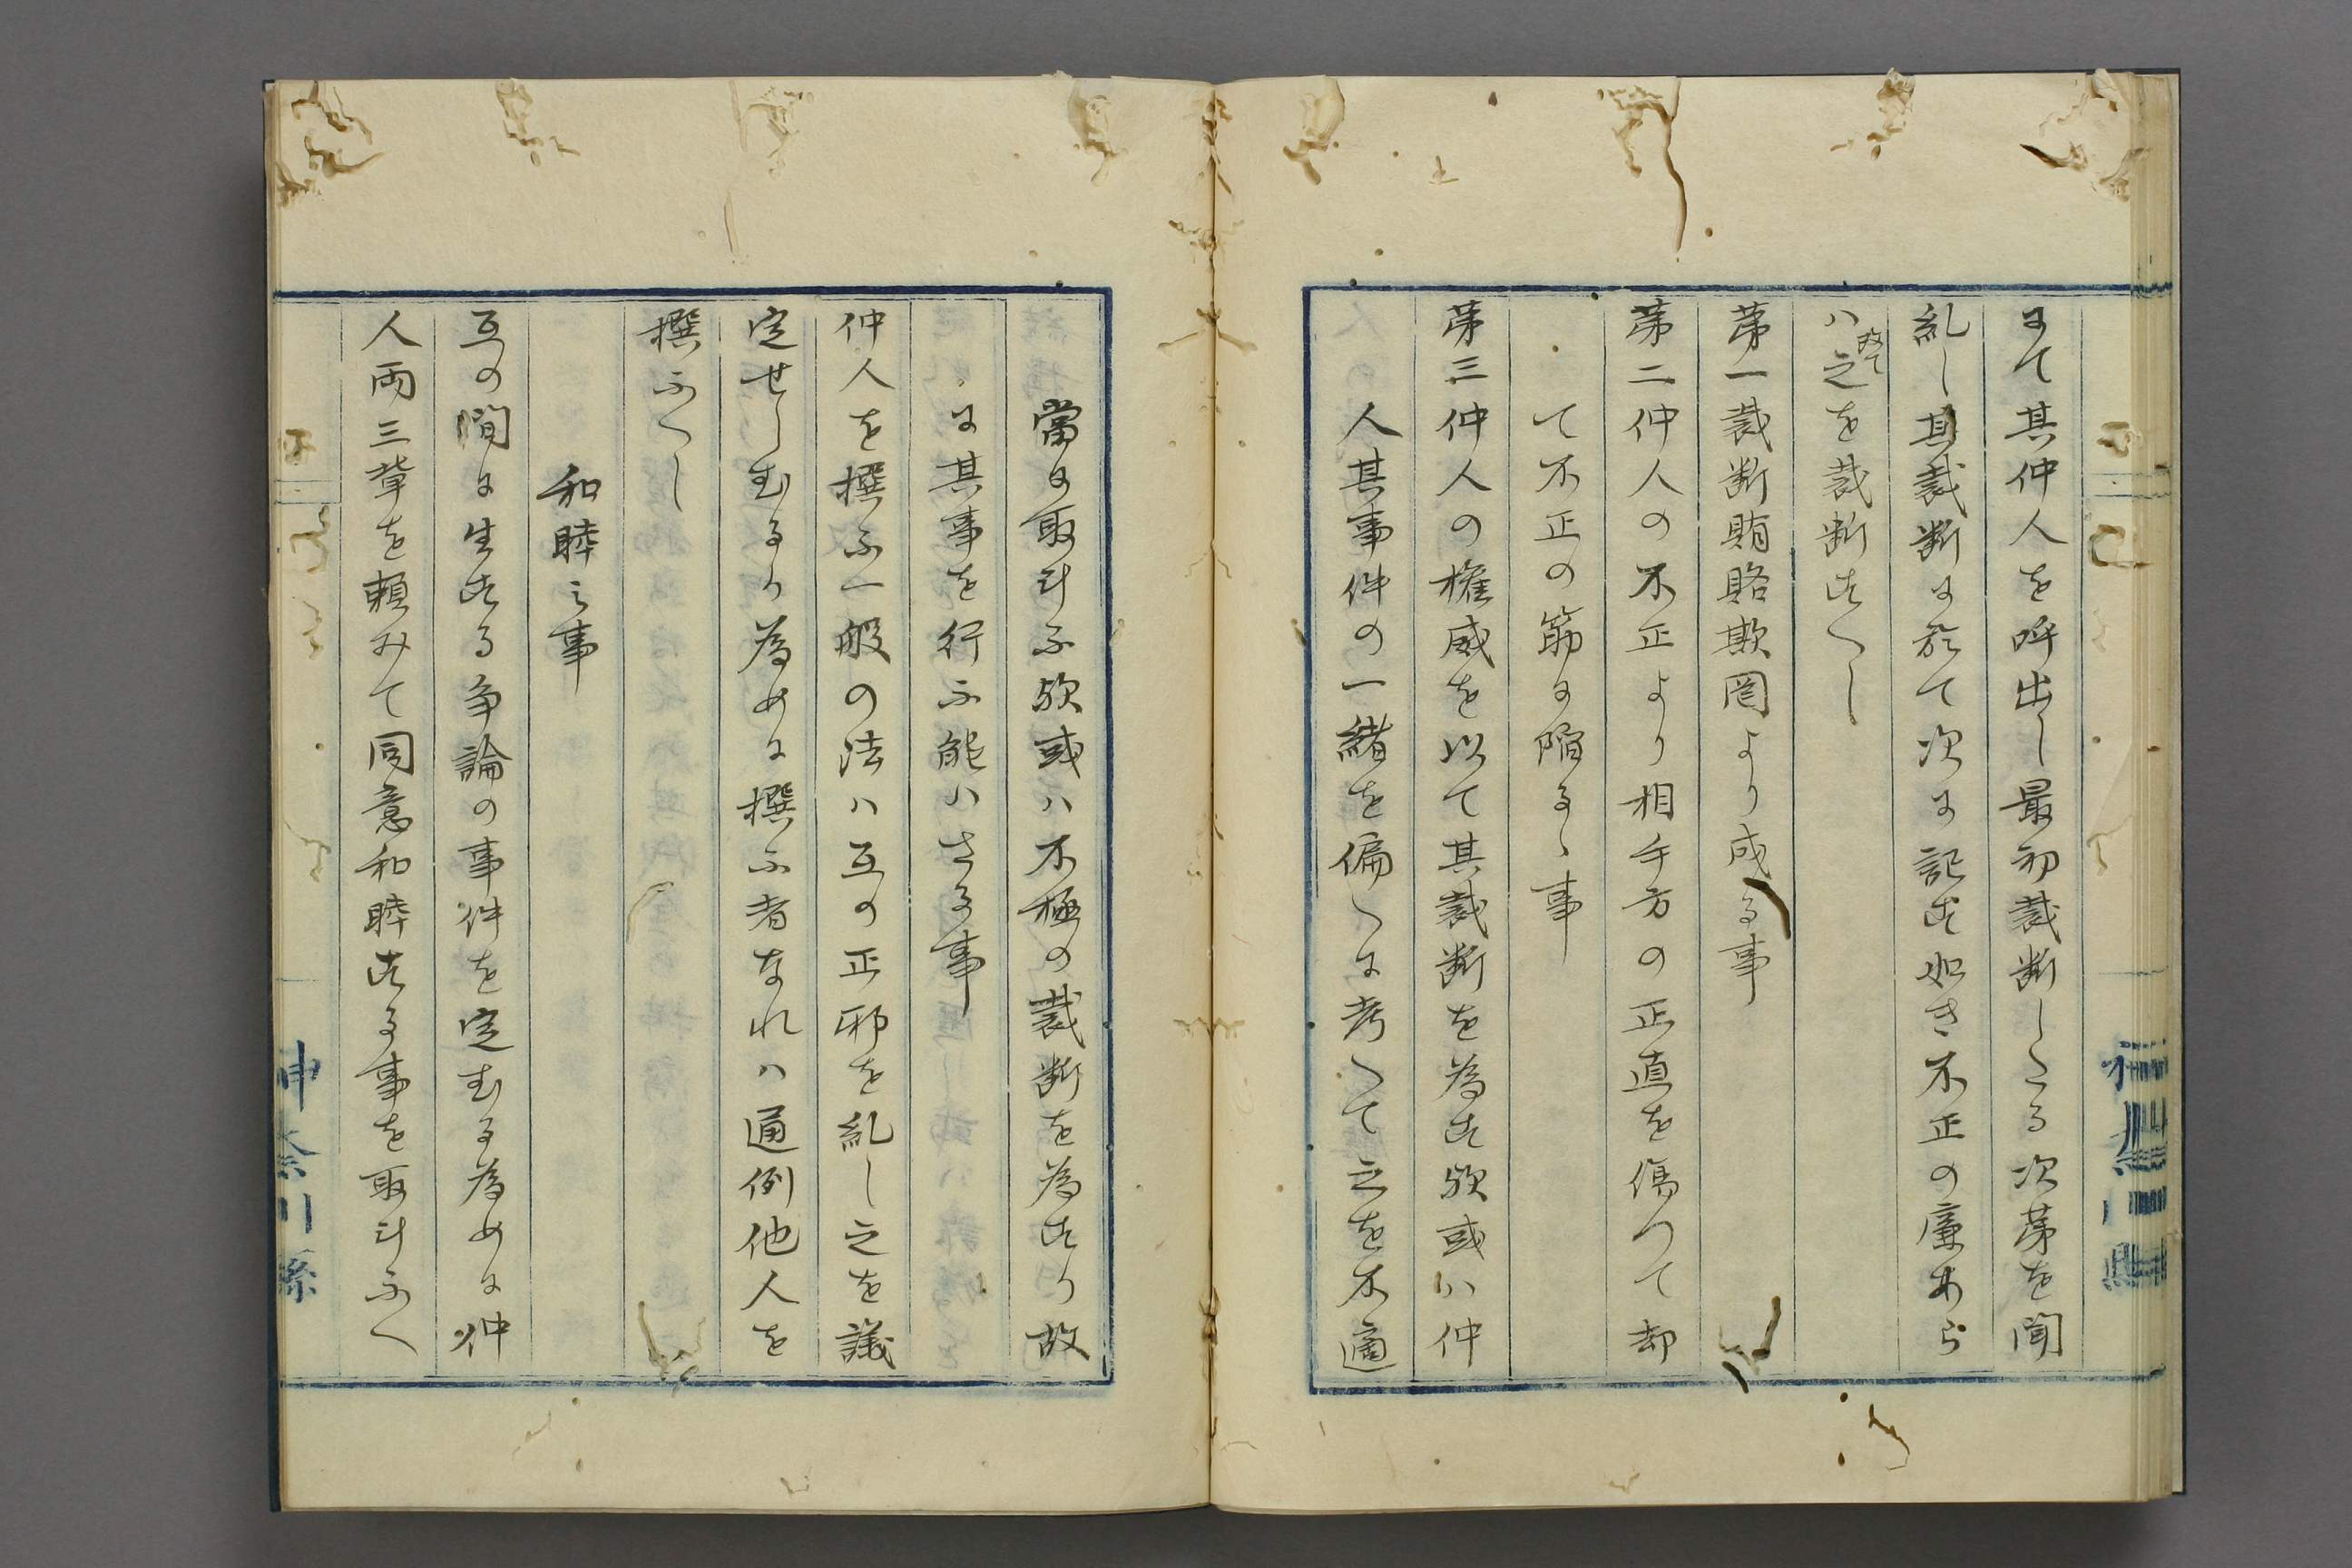 にて其仲人を呼出し最初裁断したる次第を聞
糺し其裁断に於て次に記す如き不正の廉あら
ハ改て之を裁断すへし
第一裁断賄賂欺罔より成る事
第二仲人の不正より相手方の正直を傷つて却
て不正の筋に陥るゝ事
第三仲人の権威を以て其裁断を為す歟或ハ仲
人其事件の一緒を偏へに考へて之を不適
當に取計ふ歟或ハ不極の裁断を為すか故
に其事を行ふ能ハさる事
仲人を撰ふ一般の法ハ互の正邪を糺し之を議
定せしむるか為めに撰ふ者なれハ通例他人を
撰ふへし
和睦之事
互の間に生する争論の事件を定むる為めに仲
人両三輩を頼みて同意和睦する事を取計ふへ
神奈川縣